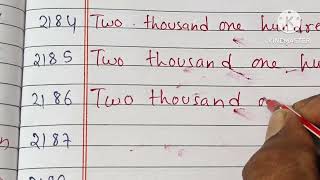 2184 Two thousand one hundre
KINEMASTER
2185 Two thousand one hu
2186 Two thousand o
2187